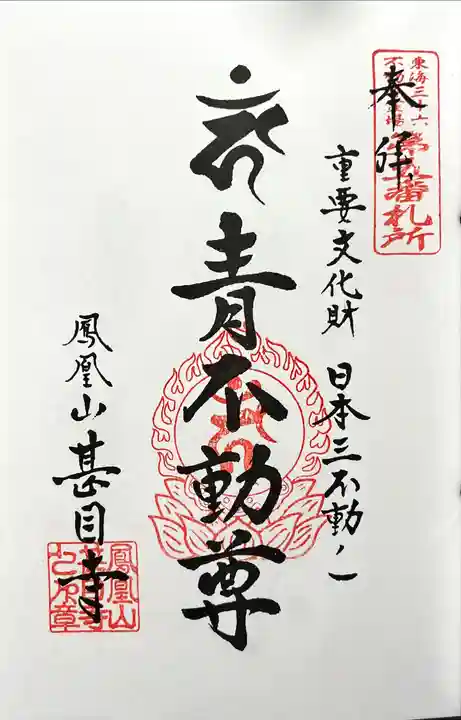 東海三十六
不動霊場
第二番札所
奉拝
重要文化財 日本三不動ノ一
青不動尊
鳳凰山 甚目寺
鳳凰山
甚目寺